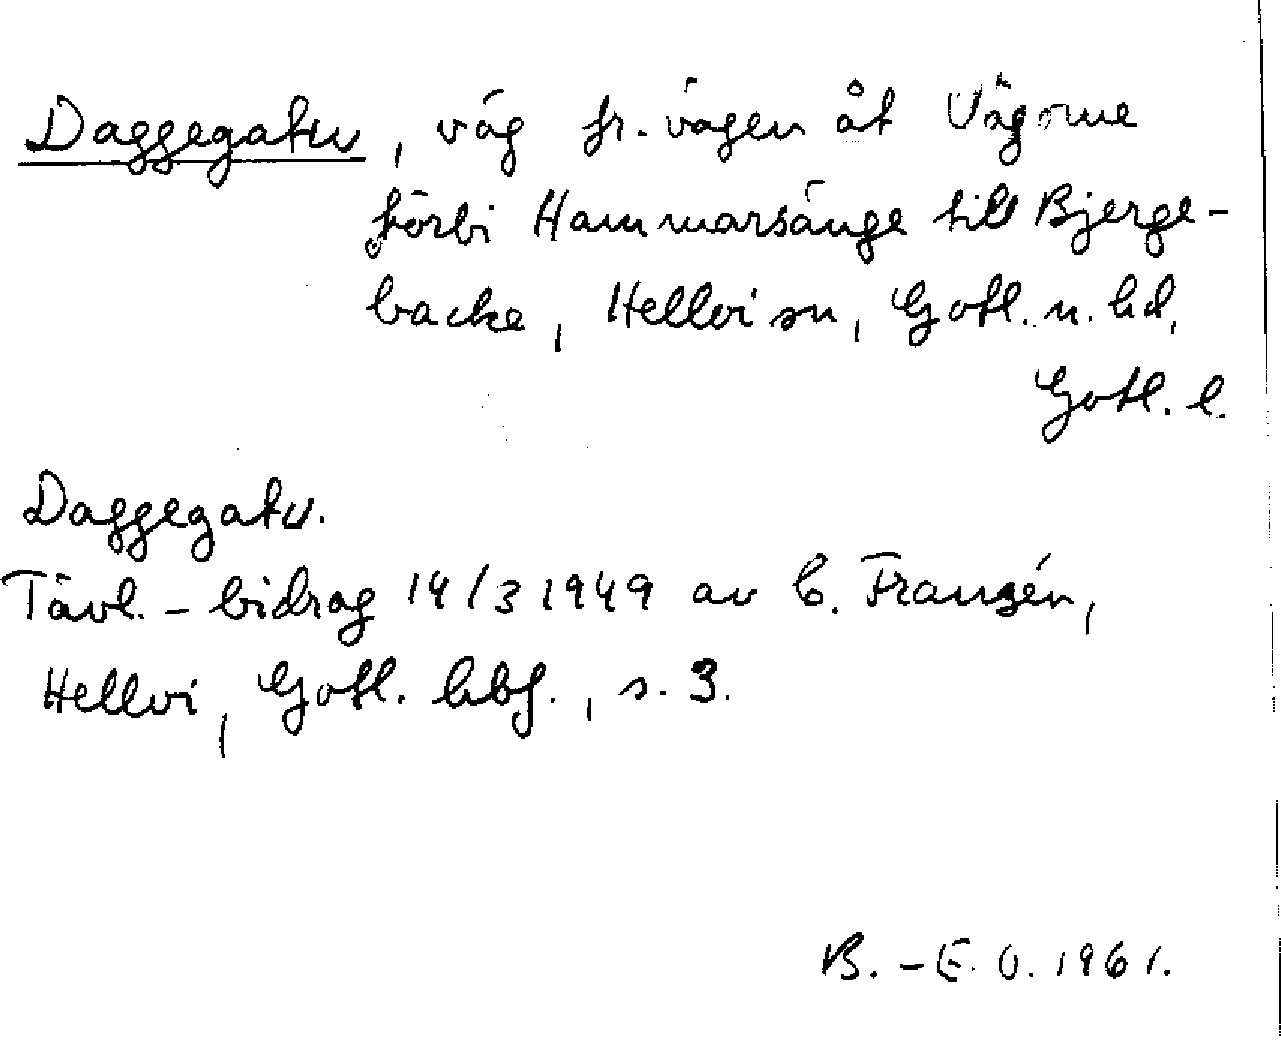 Daggegatu, väg fr. vägen åt Vägome
förbi Hammarsänge till Bjerge-
backe, Hellvi sn, Gotl. n. hd,
Gotl. l.
Daggegatu.
Tävl. - bidrag 14/3 1949 av C. Franzén,
Hellvi, Gotl. hbf., s. 3.
B. - E. O. 1961.